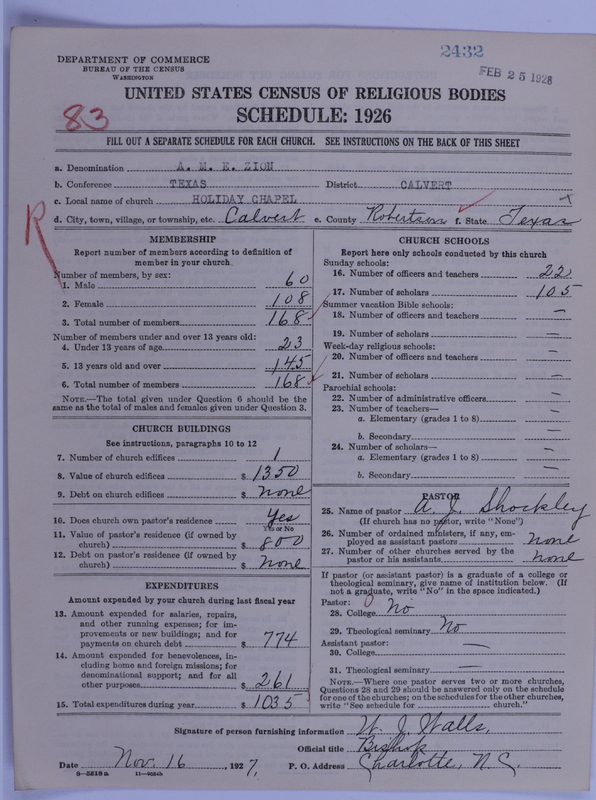 2432
FEB 25 1928
DEPARTMENT OF COMMERCE
BUREAU OF THE CENSUS
WASHINGTON
UNITED STATES CENSUS OF RELIGIOUS BODIES
SCHEDULE: 1926
83
FILL OUT A SEPARATE SCHEDULE FOR EACH CHURCH. SEE INSTRUCTIONS ON THE BACK OF THIS SHEET
a. Denomination A. M. E. ZION
b. Conference TEXAS District CALVERT
c. Local name of church HOLIDAY CHAPEL
d. City, town, village, or township, etc. Calvert e. County Robertson f. State Texas
R
MEMBERSHIP
Report number of members according to definition of member in your church.
Number of members, by sex:
1. Male 60
2. Female 108
3. Total number of members 168
Number of members under and over 13 years old:
4. Under 13 years of age 23
5. 13 years old and over 145
6. Total number of members 168
NOTE.—The total given under Question 6 should be the same as the total of males and females given under Question 3.
CHURCH BUILDINGS
See instructions, paragraphs 10 to 12
7. Number of church edifices 1
8. Value of church edifices $ 1350
9. Debt on church edifices $ none
10. Does church own pastor's residence Yes
Yes or No
11. Value of pastor's residence (if owned by church) $ 800
12. Debt on pastor's residence (if owned by church) $ none
EXPENDITURES
Amount expended by your church during last fiscal year
13. Amount expended for salaries, repairs, and other running expenses; for improvements or new buildings; and for payments on church debt $ 774
14. Amount expended for benevolences, including home and foreign missions; for denominational support; and for all other purposes $ 261
15. Total expenditures during year $ 1035
CHURCH SCHOOLS
Report here only schools conducted by this church
Sunday schools:
16. Number of officers and teachers 22
17. Number of scholars 105
Summer vacation Bible schools:
18. Number of officers and teachers —
19. Number of scholars —
Week-day religious schools:
20. Number of officers and teachers —
21. Number of scholars —
Parochial schools:
22. Number of administrative officers —
23. Number of teachers—
a. Elementary (grades 1 to 8) —
b. Secondary —
24. Number of scholars—
a. Elementary (grades 1 to 8) —
b. Secondary —
PASTOR
25. Name of pastor A. J. Shockley
(If church has no pastor, write "None")
26. Number of ordained ministers, if any, employed as assistant pastors none
27. Number of other churches served by the pastor or his assistants none
If pastor (or assistant pastor) is a graduate of a college or theological seminary, give name of institution below. (If not a graduate, write "No" in the space indicated.)
Pastor:
28. College No
29. Theological seminary No
Assistant pastor:
30. College —
31. Theological seminary —
NOTE.—Where one pastor serves two or more churches, Questions 28 and 29 should be answered only on the schedule for one of the churches; on the schedules for the other churches, write "See schedule for church."
Signature of person furnishing information W. J. Walls,
Official title Bishop
Date Nov. 16, 1927. P. O. Address Charlotte, N. C.
8-5518a 11-9554b